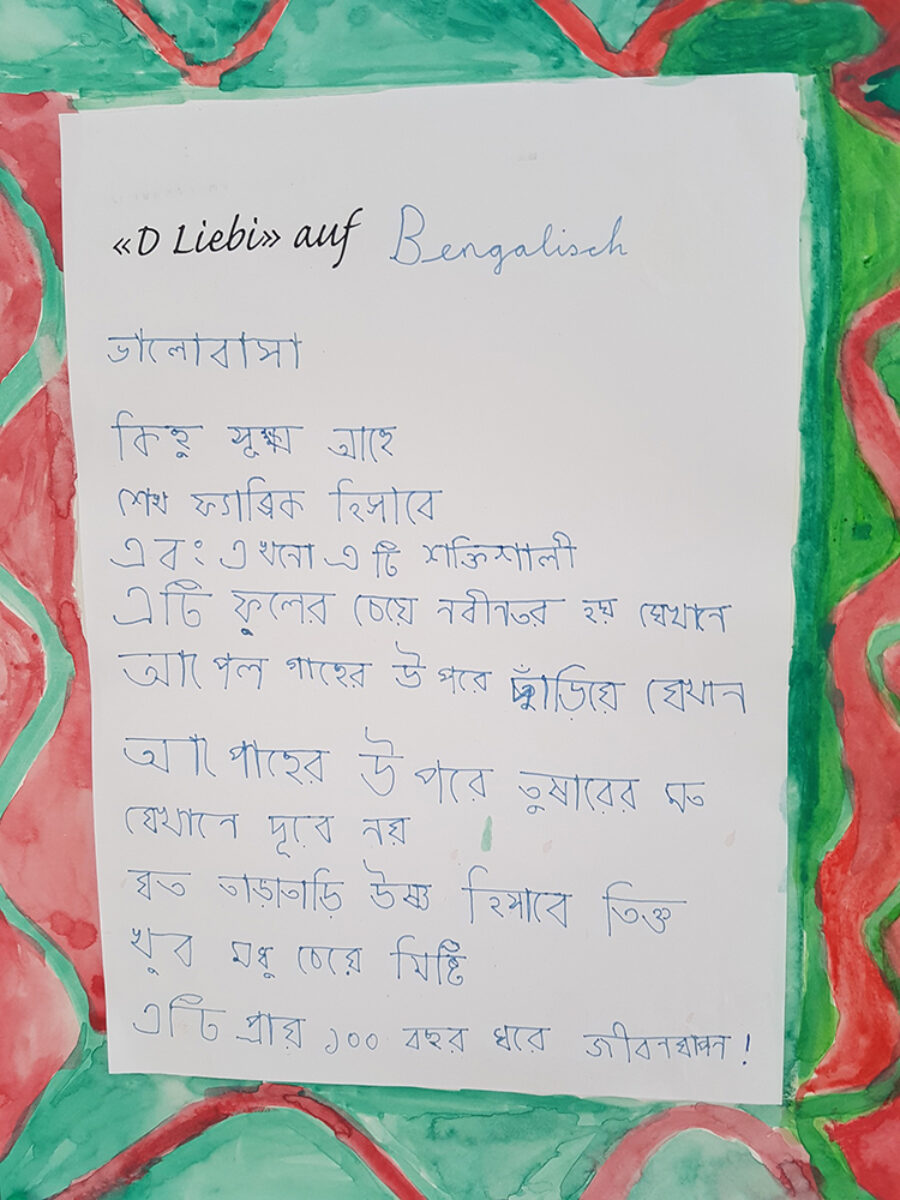 «D Liebi» auf Bengalisch
ভালোবাসা
কিছু সূক্ষ্ম আছে
শেষ ফ্যাব্রিক হিসাবে
এবং এখনো এটি শক্তিশালী
এটি ফুলের চেয়ে নবীনতর হয় যেখানে
আপেল গাছের উপরে ছাঁড়িয়ে যেখান
আপোছের উপরে তুষারের মত
যেখানে দূরে নয়
যত তাড়াতাড়ি উষ্ণ হিসাবে তিক্ত
খুব মধু চেয়ে মিষ্টি
এটি প্রায় ১০০ বছর ধরে জীবনযাপন!